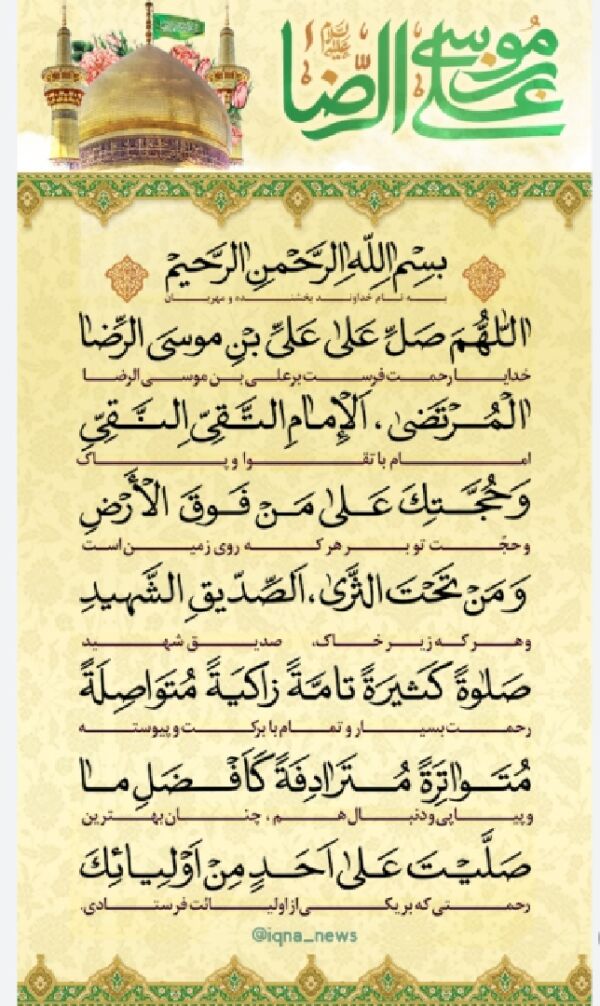 علی بن موسی الرضا علیه السلام
بِسْمِ اللّٰهِ الرَّحْمٰنِ الرَّحیٖمْ
به نام خداوند بخشنده و مهربان
اَللّٰهُمَّ صَلِّ عَلیٰ عَلیِّ بْنِ موسَی الرِّضا
خدایا رحمت فرست بر علی بن موسی الرضا
الْمُرْتَضیٰ، اَلْإِمامِ التَّقِیِّ النَّقِیِّ
امام با تقوا و پاک
وَحُجَّتِكَ عَلیٰ مَنْ فَوقَ الْأَرْضِ
و حجّت تو بر هر که روی زمین است
وَ مَنْ تَحْتَ الثَّریٰ، اَلصِّدّیقِ الشَّهیدِ
و هر که زیر خاک، صدیق شهید
صَلوٰةً کَثیرَةً تامَةً زاکیَةً مُتَواصِلَةً
رحمت بسیار و تمام با برکت و پیوسته
مُتَواتِرَةً مُتَرادِفَةً کَاَفْضَلِ ما
و پیاپی و دنبال هم، چنان بهترین
صَلَّیْتَ عَلیٰ اَحَدٍ مِنْ اَوْلِیائِكَ
رحمتی که بر یکی از اولیائت فرستادی.
@iqna_news